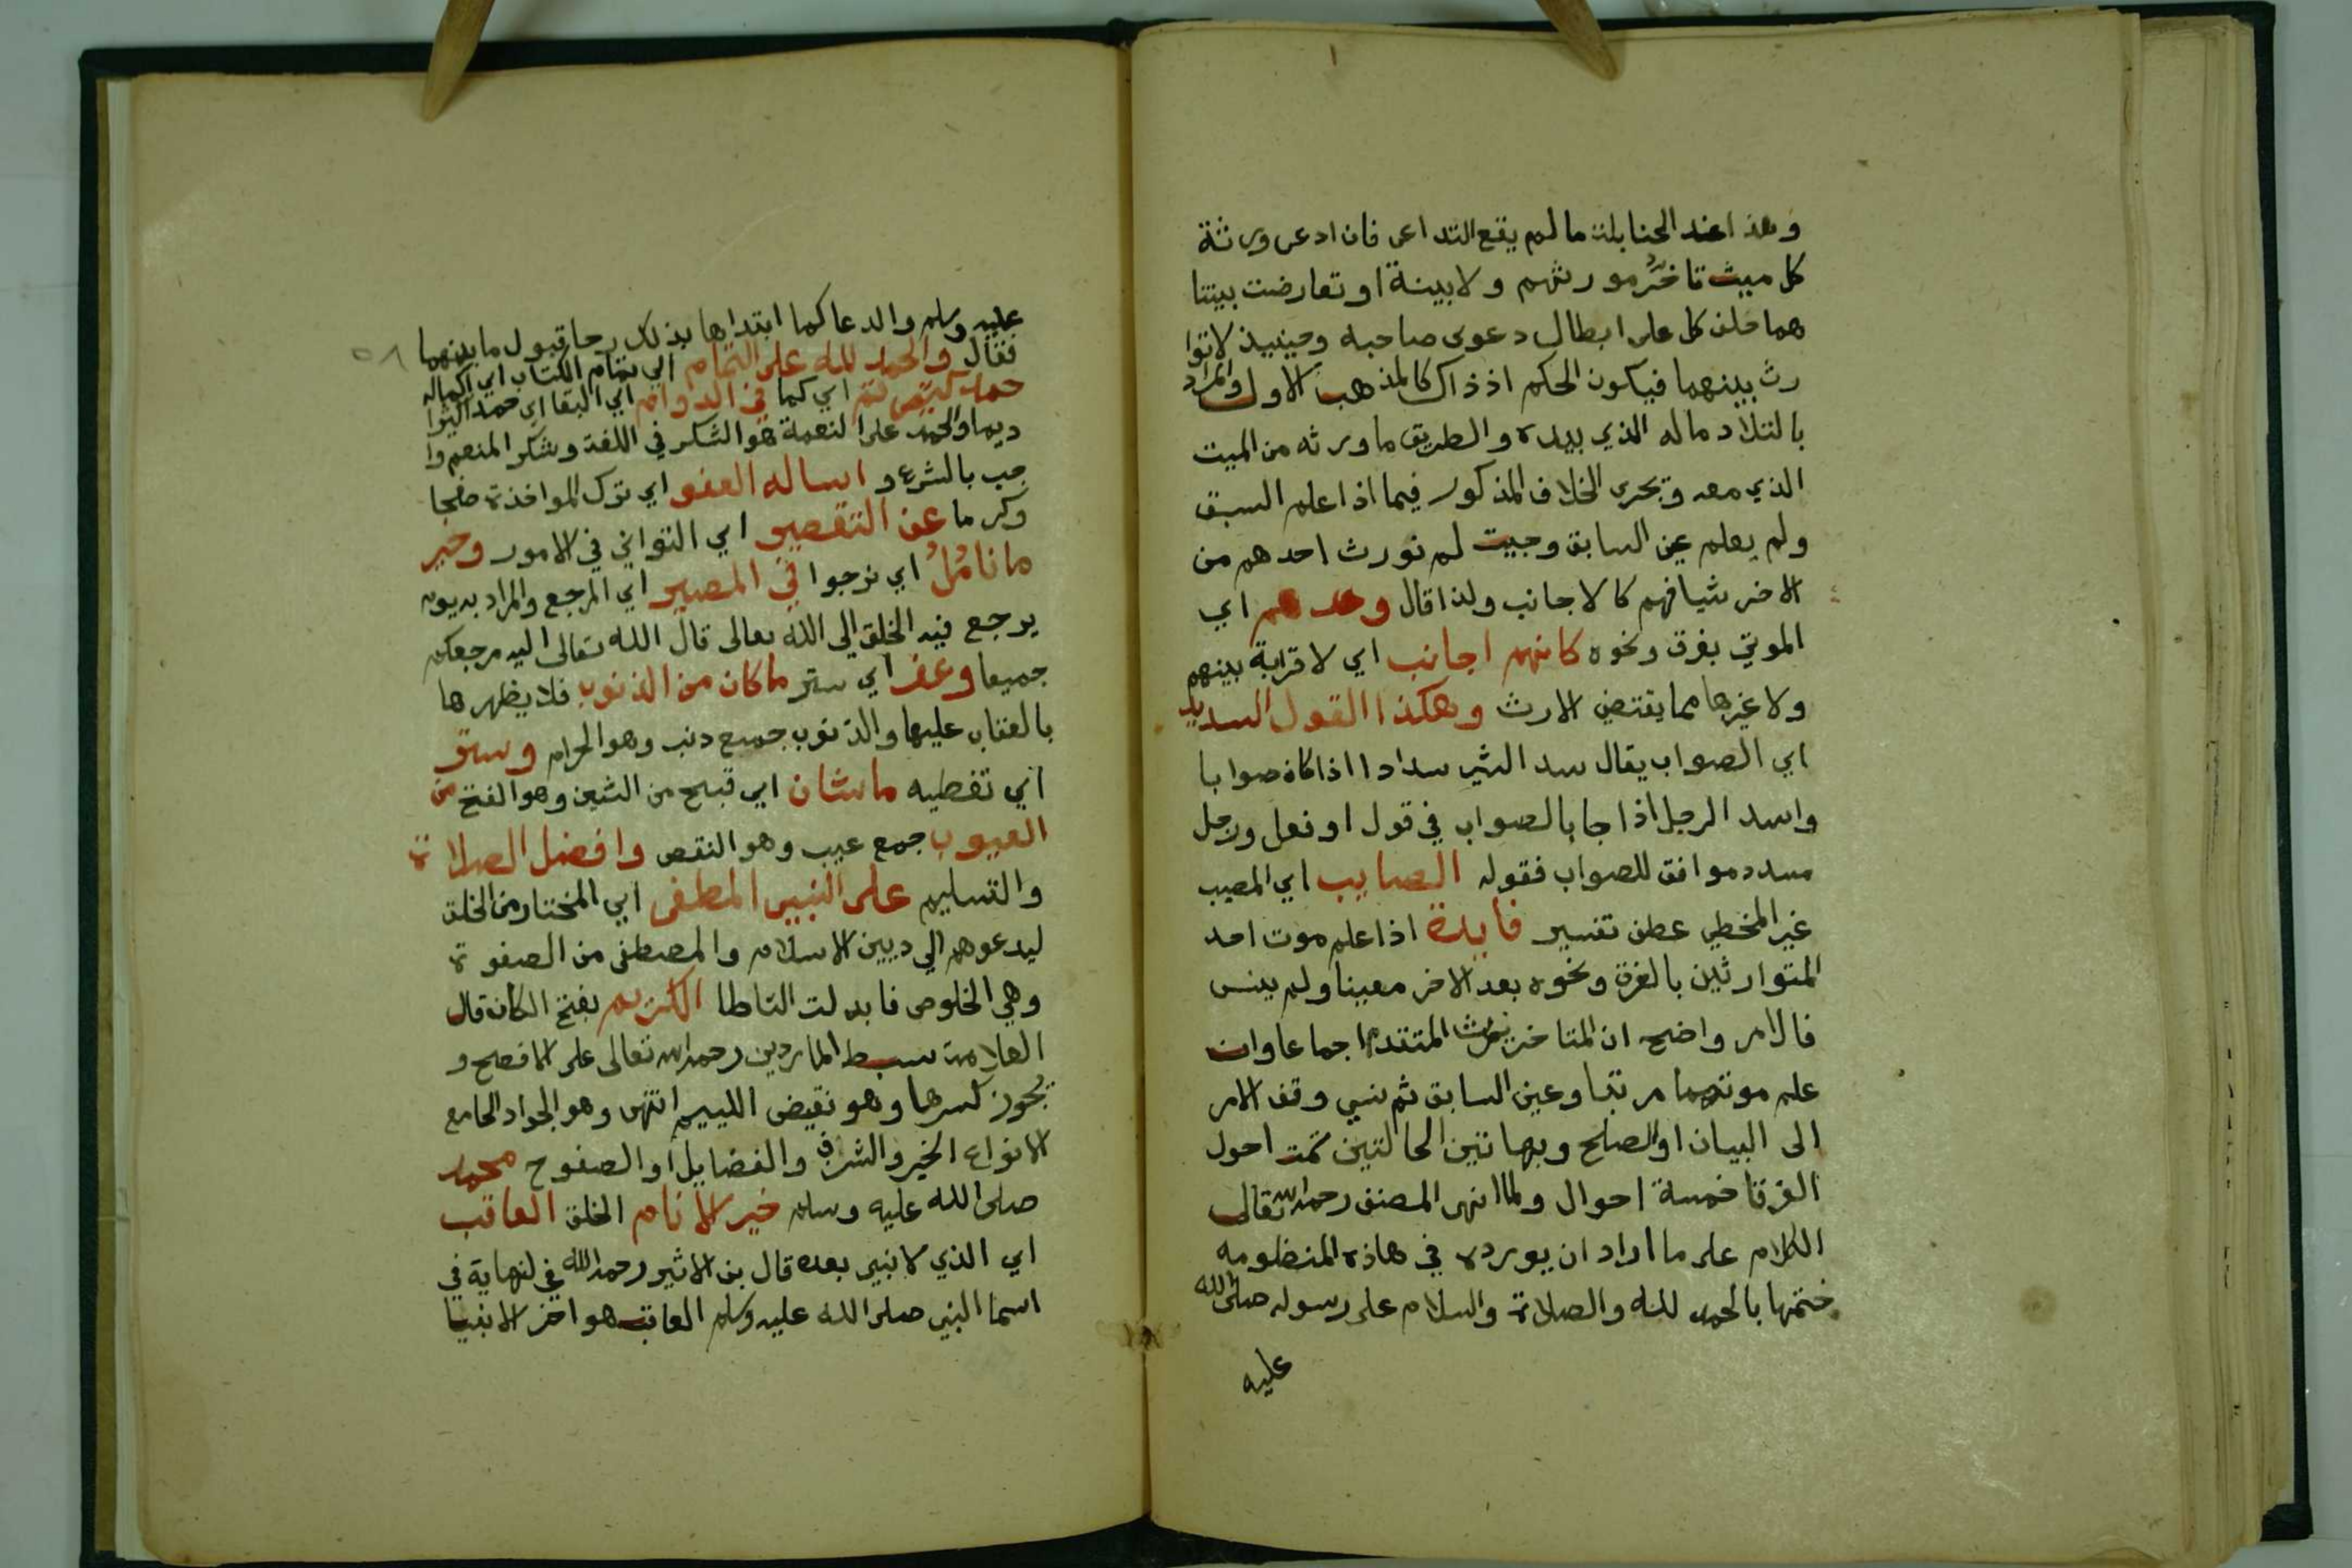 وهذا عند الحنابلة ما لم يقع التداعى فان ادعى ورثة
كل ميت تاخر مورثهم ولا بينة او تعارضت بينتا
هما حلف كل على ابطال دعوى صاحبه وحينيذ لا توا
رث بينهما فيكون الحكم اذ ذاك كالمذهب الاول والمراد
بالتلاد ماله الذي بيده والطريق ما ورثه من الميت
الذي معه وتجرى الخلاف المذكور فيما اذا علم السبق
ولم يعلم عين السابق وحيث لم نورث احدهم من
الاخر شيا فهم كالاجانب ولذا قال وعدهم اي
الموتي بغرق ونحوه كانهم اجانب اي لا قرابة بينهم
ولا غيرها مما يقتضي الارث وهكذا القول السديد
اي الصواب يقال سد الشي سدادا اذا كان صوابا
واسد الرجل اذا جا بالصواب في قول او فعل ورجل
مسدد موافق للصواب فقوله الصايب اي المصيب
غير المخطي عطف تفسير فايدة اذا علم موت احد
المتوارثين بالغرق ونحوه بعد الاخر معينا ولم ينس
فالامر واضح ان المتاخر يرث المتقدم اجماعا وان
علم موتهما مرتبا وعين السابق ثم نسي وقف الامر
الى البيان او الصلح وبهاتين الحالتين تمت احول
الغرقا خمسة احوال ولما انهى المصنف رحمه الله تعالى
الكلام على ما اراد ان يورده في هاذه المنظومه
ختمها بالحمد لله والصلاة والسلام على رسوله صلى الله
عليه
٥٨
عليه وسلم والدعا كما ابتداها بذلك رجا قبول ما بينهما
فقال والحمد لله على التمام اي تمام الكتاب اي اكماله
حمدا كثيرا تم اي كما في الدوام اي البقا اي حمدا
ديما والحمد على النعمة هو الشكر في اللغة وشكر المنعم وا
جب بالشرع و اساله العفو اي ترك المواخذة صفحا
وكرما عن التقصير اي التواني في الامور وخير
ما نامُلُ اي نرجوا في المصير اي المرجع والمراد به يوم
يرجع فيه الخلق الي الله تعالى قال الله تعالى اليه مرجعكم
جميعا وغفر اي ستر ما كان من الذنوب فلا يظهرها
بالعقاب عليها والذنوب جميع ذنب وهو الحرام وستر
اي تغطيه ما شان اي قبح من الشين وهو القبح من
العيوب جمع عيب وهو النقص وافضل الصلاة
والتسليم على النبي المطفى اي المختار من الخلق
ليدعوهم الي ديين الاسلام والمصطفى من الصفوة
وهي الخلوص فابدلت التا طا الكريم بفتح الكاف قال
العلامة سبط المارديني رحمه الله تعالى على الافصح و
يجوز كسرها وهو نقيض الليم انتهى وهو الجواد الجامع
لانواع الخير والشرف والفضايل او الصفوح محمد
صلى الله عليه وسلم خير الانام الخلق العاقب
اي الذي لا نبي بعده قال بن الاثير رحمه الله في لنهاية في
اسما النبي صلى الله عليه وسلم العاقب هو اخر الانبيا